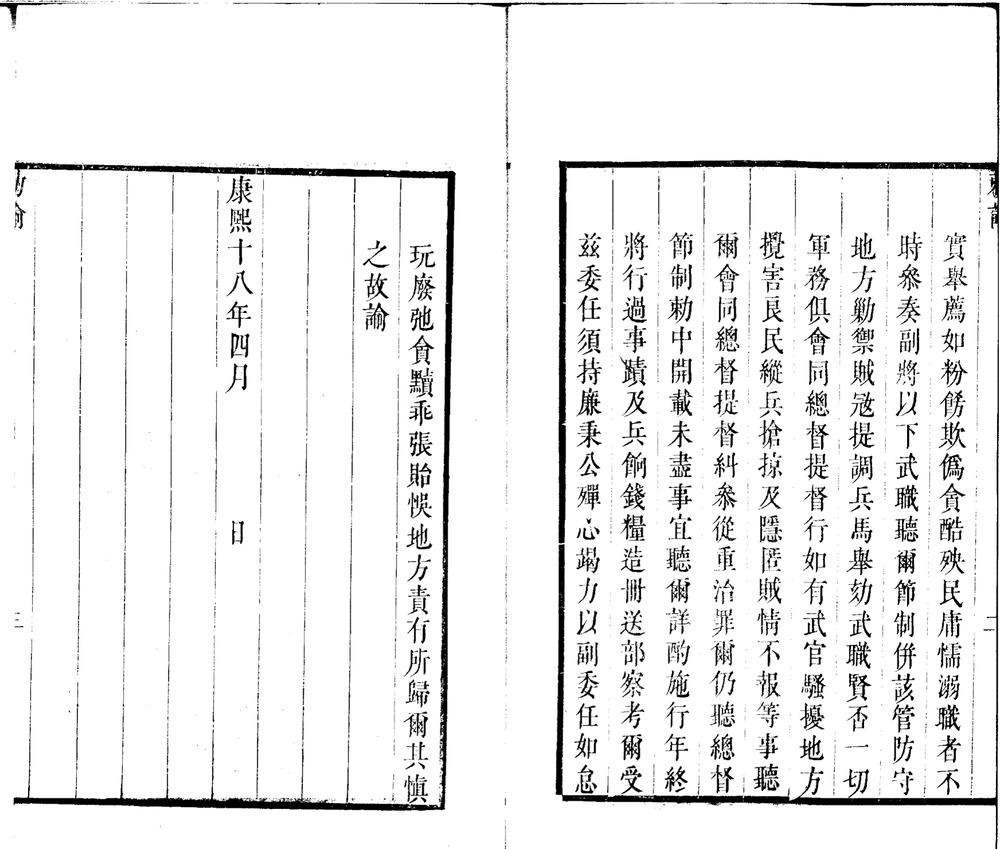 實舉薦如粉餝欺僞貪酷殃民庸懦溺職者不
時叅奏副將以下武職聽爾節制併該管防守
地方勦禦賊宼提調兵馬舉劾武職賢否一切
軍務俱會同總督提督行如有武官騷擾地方
攪害良民縱兵搶掠及隱匿賊情不報等事聽
爾會同總督提督糾叅從重治罪爾仍聽總督
節制勅中開載未盡事宜聽爾詳酌施行年終
將行過事蹟及兵餉錢糧造冊送部察考爾受
茲委任須持廉秉公殫心竭力以副委任如怠
二
玩廢弛貪黷乖張貽悞地方責有所歸爾其慎
之故諭
康熙十八年四月 日
三